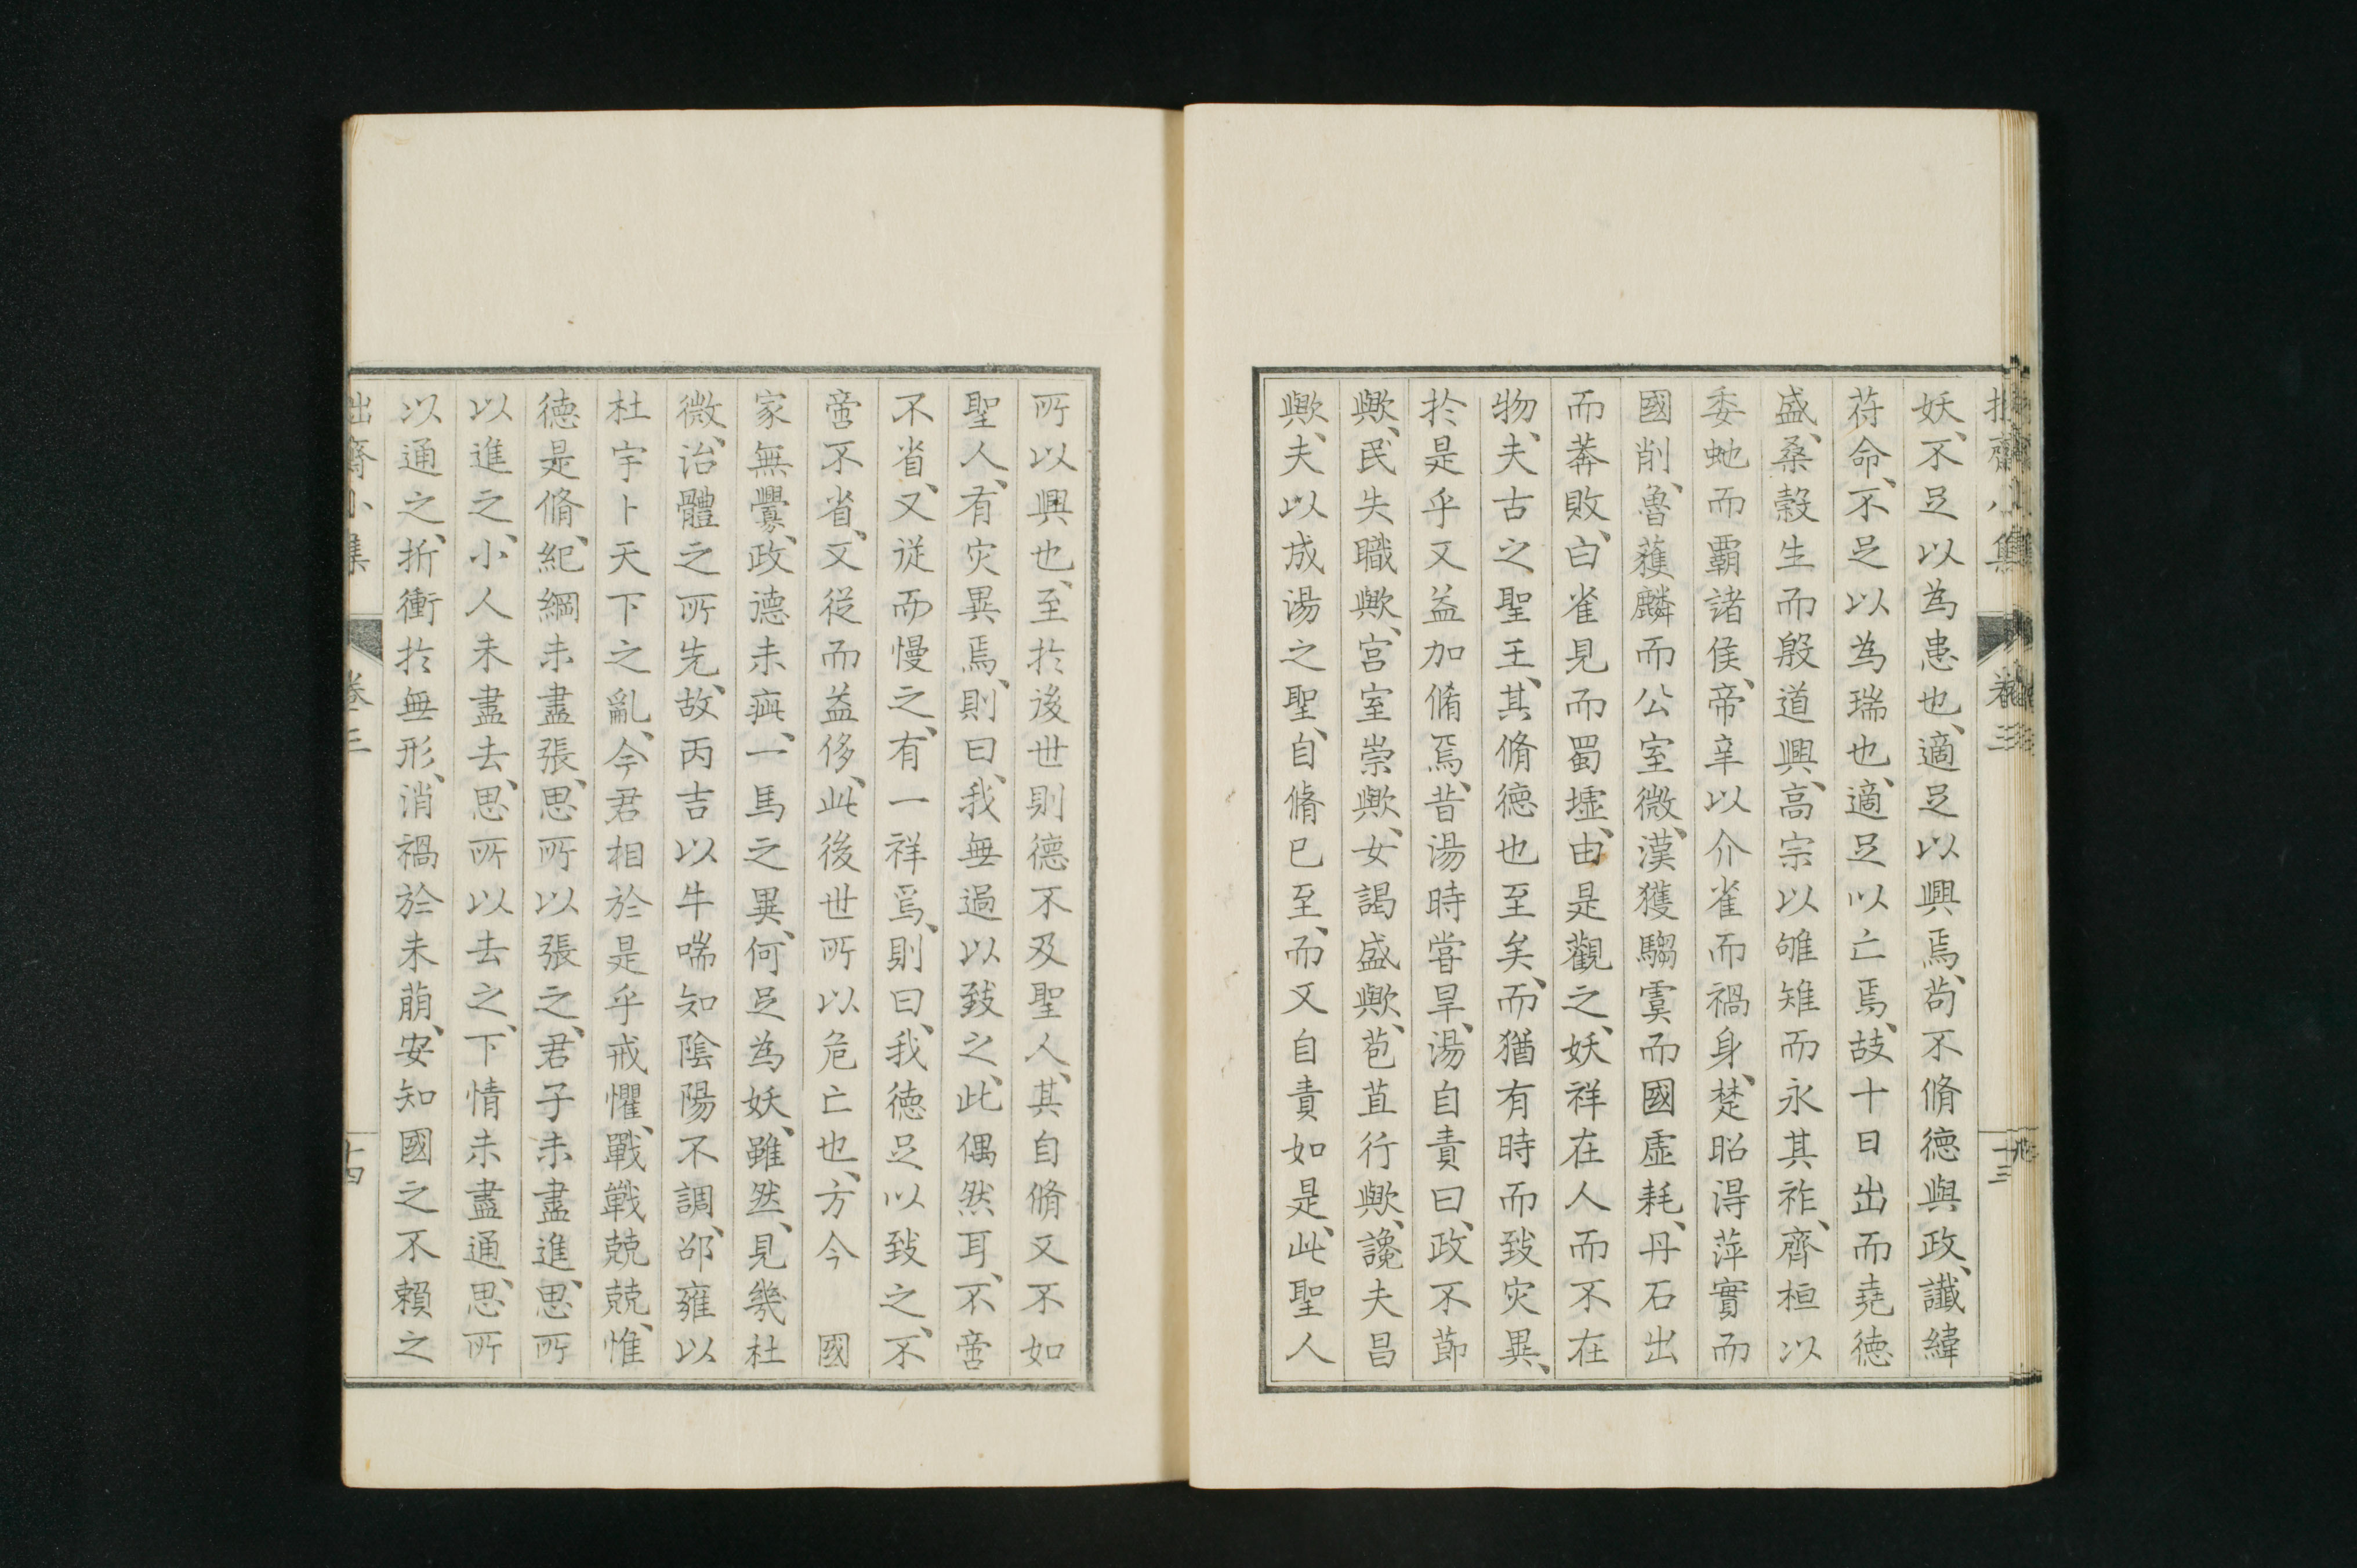 妖、不足以為患也、適足以興焉、茍不脩德與政、讖緯
符命、不足以為瑞也、適足以亡焉、故十日出而堯德
盛、桑穀生而殷道興、高宗以雊雉而永其祚、齊桓以
委虵而覇諸侯、帝辛以介雀而禍身、楚昭得萍實而
國削、魯獲麟而公室微、漢獲騶虞而國虛耗、丹石出
而莽敗、白雀見而蜀墟、由是觀之、妖祥在人而不在
物、夫古之聖王、其脩德也至矣、而猶有時而致灾異、
扵是乎又益加脩焉、昔湯時嘗旱、湯自責曰、政不節
歟、民失職歟、宮室崇歟、女謁盛歟、苞苴行歟、讒夫昌
歟、夫以成湯之聖、自脩已至、而又自責如是、此聖人
所以興也、至扵後世則德不及聖人、其自脩又不如
聖人、有灾異焉、則曰、我無過以致之、此偶然耳、不啻
不省、又從而慢之、有一祥焉、則曰、我德足以致之、不
啻不省、又從而益侈、此後世所以危亡也、方今 國
家無釁、政德未爽、一馬之異、何足為妖、雖然、見幾杜
微、治體之所先、故丙吉以牛喘知陰陽不調、邵雍以
杜宇卜天下之亂、今君相於是乎戒懼、戰戰兢兢、惟
德是脩、紀綱未盡張、思所以張之、君子未盡進、思所
以進之、小人未盡去、思所以去之、下情未盡通、思所
以通之、折衝扵無形、消禍於未萠、安知國之不賴之
拙齋小集 卷三 十四